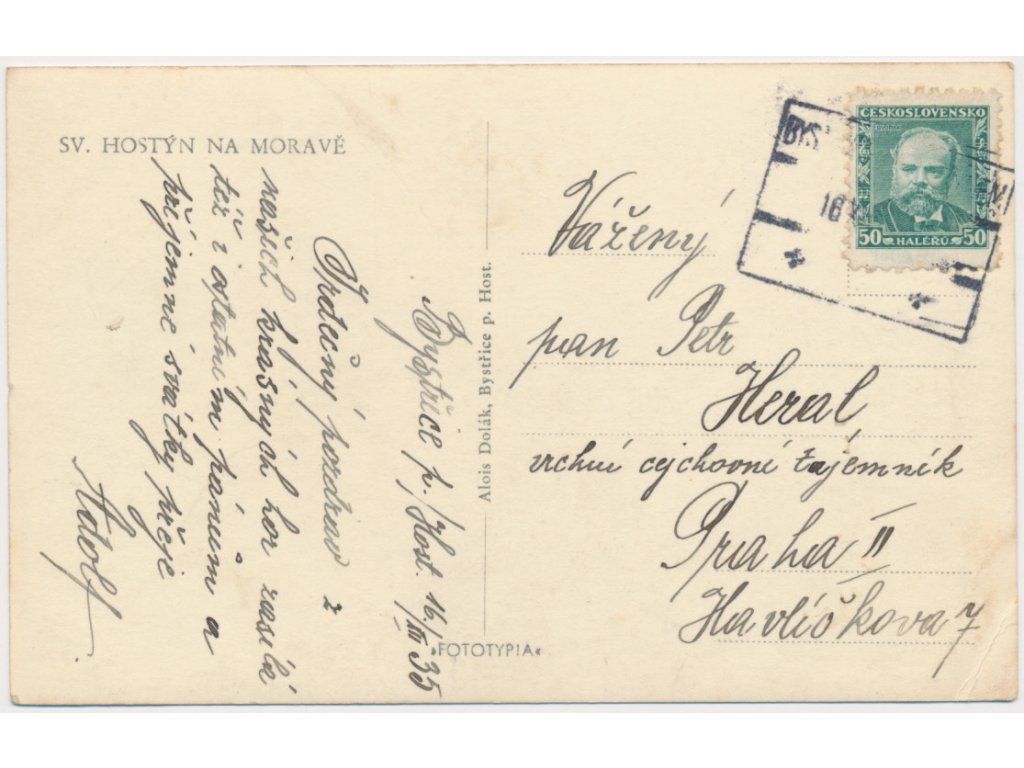 SV. HOSTÝN NA MORAVĚ
Bystřice p./Host. 16./XII 35
Srdečný pozdrav z
našich krásných hor zasílá
též i ostatním pánům a
příjemné svátky přeje
Adolf
Alois Dolák, Bystřice p. Host.
»FOTOTYPIA«
ČESKOSLOVENSKO
50 HALÉŘŮ 50
BYS
16 XI
Vážený
pan Petr
Heral
vrchní cejchovné tajemník
Praha II
Havlíčkova 7